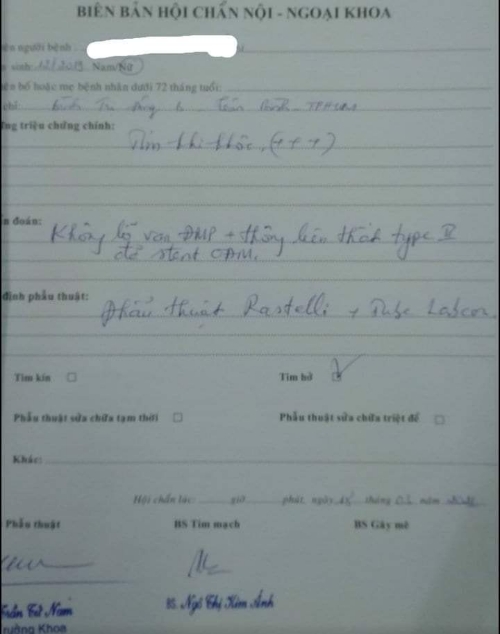 BIÊN BẢN HỘI CHẨN NỘI - NGOẠI KHOA
ên người bệnh:
sinh: 12/2019 Nam/Nữ
ên bố hoặc mẹ bệnh nhân dưới 72 tháng tuổi:
chỉ: Bình Trị Đông
ng triệu chứng chính:
Tím khi khóc, (+++)
n đoán:
Không lỗ van ĐMP + thông liên thất type II
đã stent
định phẫu thuật:
Phẫu thuật Rastelli + Tube Labcor.
Tim kín □ Tim hở
Phẫu thuật sửa chữa tạm thời □ Phẫu thuật sửa chữa triệt để □
Khác:
Hội chẩn lúc: giờ phút, ngày tháng 03 năm
Phẫu thuật BS Tim mạch BS Gây mê
Trần Tử Nam BS. Ngô Thị Kim Ánh
rưởng Khoa